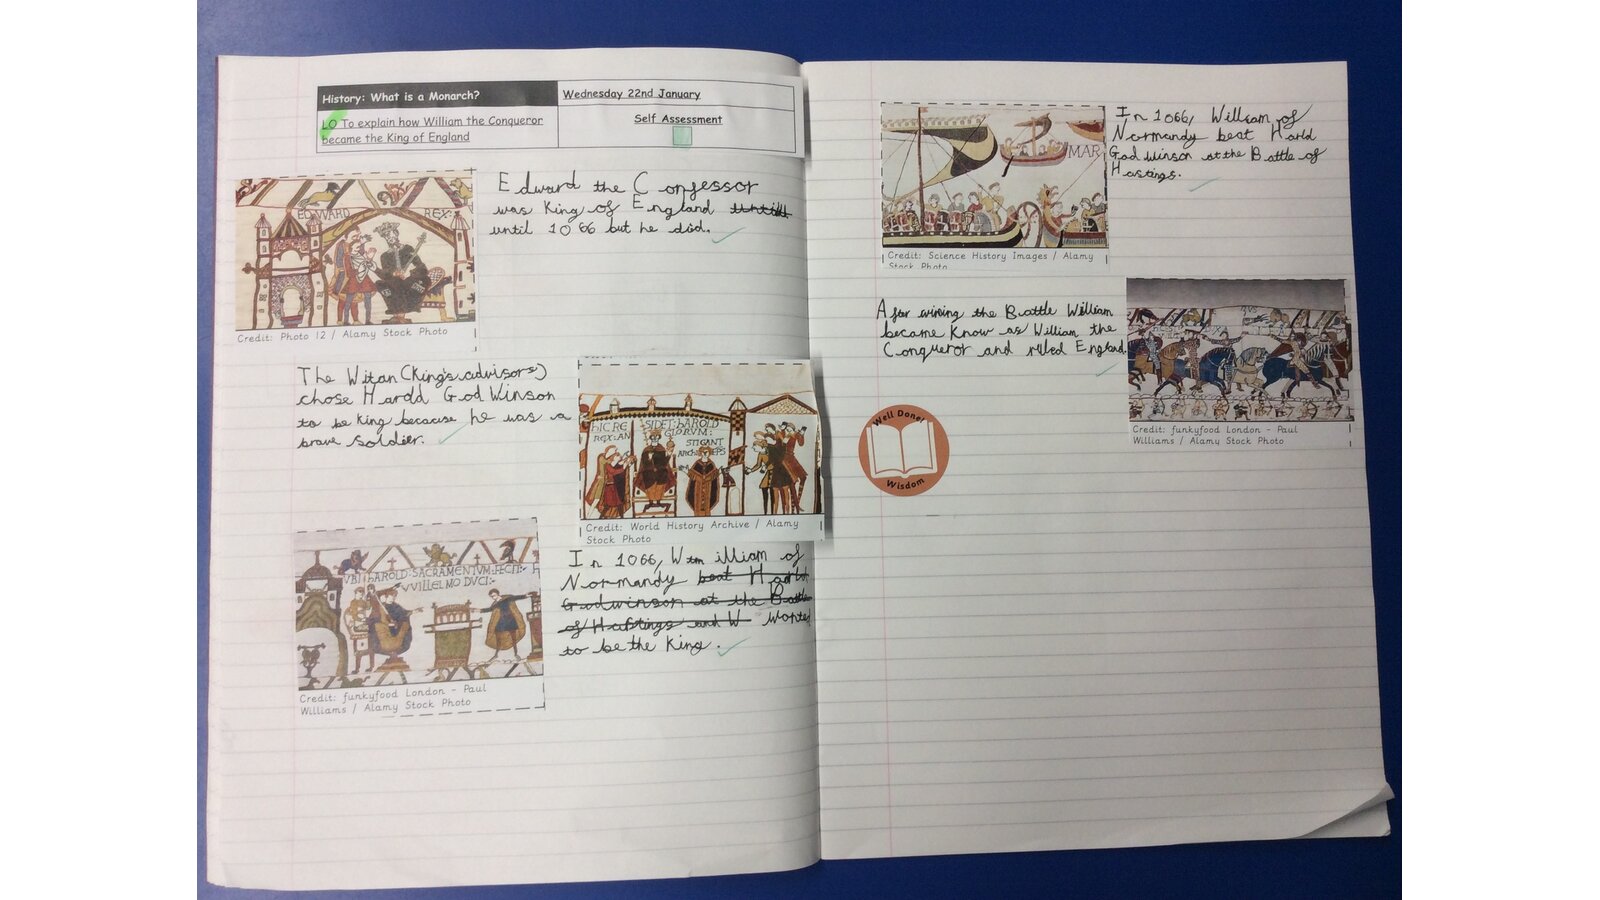 History: What is a Monarch?
Wednesday 22nd January
LO To explain how William the Conqueror
became the King of England
Self Assessment
EDWARD REX:
Credit: Photo 12 / Alamy Stock Photo
Edward the Confessor
was King of England untill
until 1066 but he died.
The Witan (King's advisors)
chose Harold God Winson
to be King because he was a
brave soldier.
HIC RE SIDET: HAROLD
REX: AN GLORVM:
STIGANT
ARCHI EPS
Credit: World History Archive / Alamy
Stock Photo
VBI hAROLD: SACRAMENTVM: FECIT:
VVILLELMO DVCI:
Credit: funkyfood London - Paul
Williams / Alamy Stock Photo
In 1066, William of
Normandy beat Harld
Godwinson at the Battle
of Hastings and W wanted
to be the King.
MAR
Credit: Science History Images / Alamy
Stock Photo
In 1066, William of
Normandy beat Harld
God winson at the Battle of
Hastings.
After wining the Battle William
became Know as William the
Conqueror and ruled England.
Credit: funkyfood London - Paul
Williams / Alamy Stock Photo
Well Done!
Wisdom